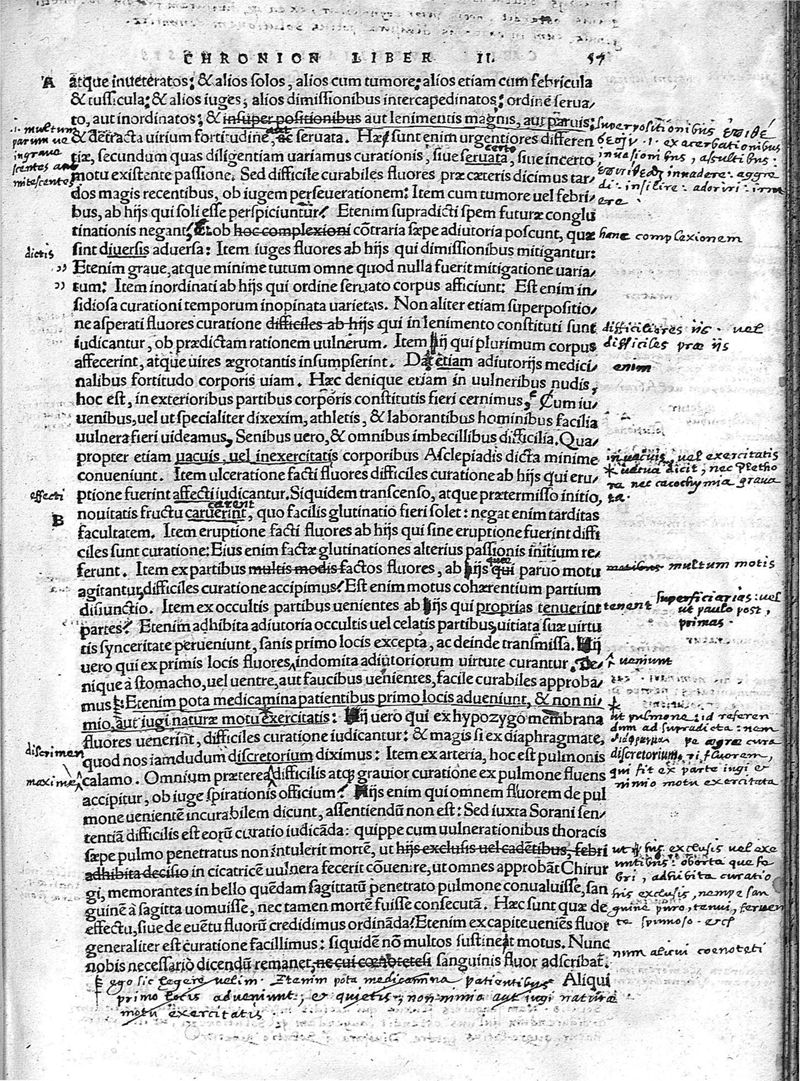 CHRONION LIBER II. 57
A atque inueteratos: & alios solos, alios cum tumore: alios etiam cum febricula
& tussicula: & alios iuges, alios dimissionibus intercapedinatos: ordine serua/
to, aut inordinatos: & insuper positionibus aut lenimentis magnis, aut paruis:
& detracta uirium fortitudine, ac seruata. Hae sunt enim urgentiores differen
tiæ, secundum quas diligentiam uariamus curationis, siue seruata, siue incerto
motu existente passione. Sed difficile curabiles fluores præ cæteris dicimus tar/
dos magis recentibus, ob iugem perseuerationem: Item cum tumore uel febri/
bus, ab hijs qui soli esse perspiciuntur. Etenim supradicti spem futuræ conglu
tinationis negant: Et ob hoc complexioni cõtraria sæpe adiutoria poscunt, quæ
sint diuersis aduersa: Item iuges fluores ab hijs qui dimissionibus mitigantur:
Etenim graue, atque minime tutum omne quod nulla fuerit mitigatione uaria/
tum: Item inordinati ab hijs qui ordine seruato corpus afficiunt: Est enim in/
sidiosa curationi temporum inopinata uarietas. Non aliter etiam superpositio/
ne asperati fluores curatione difficiles ab hijs qui in lenimento constituti sunt
iudicantur, ob prædictam rationem uulnerum. Item hij qui plurimum corpus
affecerint, atque uires ægrotantis insumpserint. Dat etiam adiutorijs medici/
nalibus fortitudo corporis uiam. Hæc denique etiam in uulneribus nudis,
hoc est, in exterioribus partibus corporis constitutis fieri cernimus, Cum iu/
uenibus, uel ut specialiter dixexim, athletis, & laborantibus hominibus facilia
uulnera fieri uideamus, Senibus uero, & omnibus imbecillibus difficilia. Qua/
propter etiam uacuis, uel inexercitatis corporibus Asclepiadis dicta minime
conueniunt. Item ulceratione facti fluores difficiles curatione ab hijs qui eru/
ptione fuerint affecti iudicantur. Siquidem transcenso, atque prætermisso initio,
B nouitatis fructu caruerint, quo facilis glutinatio fieri solet: negat enim tarditas
facultatem. Item eruptione facti fluores ab hijs qui sine eruptione fuerint diffi
ciles sunt curatione: Eius enim factæ glutinationes alterius passionis initium re/
ferunt. Item ex partibus multis modis factos fluores, ab hijs qui paruo motu
agitantur, difficiles curatione accipimus: Est enim motus cohærentium partium
disiunctio. Item ex occultis partibus uenientes ab hijs qui proprias tenuerint
partes: Etenim adhibita adiutoria occultis uel celatis partibus, uitiata suæ uirtu
tis synceritate perueniunt, sanis primo locis excepta, ac deinde transmissa. Hij
uero qui ex primis locis fluores, indomita adiutoriorum uirtute curantur. De/
nique à stomacho, uel uentre, aut faucibus uenientes, facile curabiles approba/
mus: Etenim pota medicamina patientibus primo locis adueniunt, & non ni/
mio, aut iugi naturæ motu exercitatis: Hij uero qui ex hypozygo membrana
fluores uenerint, difficiles curatione iudicantur: & magis si ex diaphragmate,
quod nos iamdudum discretorium diximus: Item ex arteria, hoc est pulmonis
calamo. Omnium præterea difficilis atque grauior curatione ex pulmone fluens
accipitur, ob iuge spirationis officium: Hijs enim qui omnem fluorem de pul
mone uenientem incurabilem dicunt, assentiendũ non est: Sed iuxta Sorani sen/
tentiã difficilis est eorũ curatio iudicãda: quippe cum uulnerationibus thoracis
sæpe pulmo penetratus non intulerit mortẽ, ut hijs exclusis uel cadẽtibus, febri
adhibita decisio in cicatricẽ uulnera fecerit cõuenire, ut omnes approbãt Chirur
gi, memorantes in bello quẽdam sagittatũ penetrato pulmone conualuisse, san
guinẽ à sagitta uomuisse, nec tamen mortẽ fuisse consecutã. Hæc sunt quæ de
effectu, siue de euẽtu fluorũ credidimus ordinãda: Etenim ex capite ueniẽs fluor
generaliter est curatione facillimus: siquidẽ nõ multos sustineat motus. Nunc
nobis necessariò dicendũ remanet, ne cui coenotesi sanguinis fluor adscribat.
Aliqui
multum
parum ue
ingraue
scentes
mitescentes
dictis
effecti
discrimen
maxime
superpositionibus
exacerbationibus
inuasionibus, assultibus
inuadere
insilire
hanc complexionem
difficiliores ijs uel
difficiles præ ijs
enim
certo
in uacuis, uel exercitatis
dicit, nec pletho
ra nec cacochymia graua
ta.
carent
multum motis
superficiarias: uel
ut paulo post,
primas.
tenent
ueniunt
ut pulmone: id referen
dum ad supradicta: nam
discretorium, fluorem,
qui fit ex parte iugi et
nimio motu exercitata
ut hijs exclusis uel exe
untibus: oborta que fe
bri, adhibita curatio
hijs exclusis, nempe san
guine puro, tenui, feruen
te spumoso
num alicui coenoteti
ego sic legere uelim. Etenim pota medicamina patientibus
primo locis adueniunt, et quietis, non nimio aut iugi naturæ
motu exercitatis.